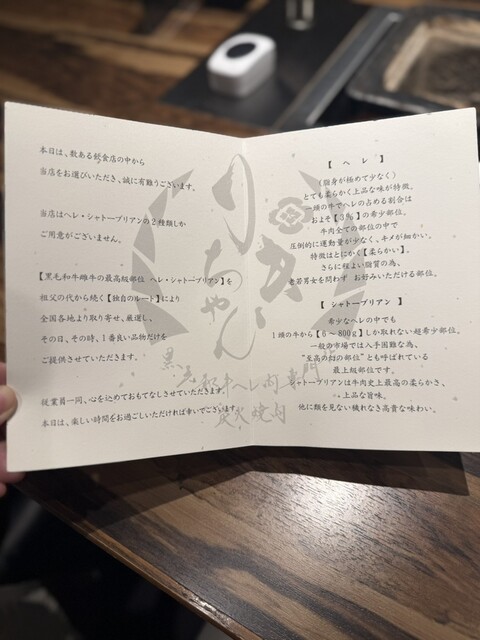 本日は、数ある飲食店の中から
当店をお選びいただき、誠に有難うございます。
当店はヘレ・シャトーブリアンの2種類しか
ご用意がございません。
【黒毛和牛雌牛の最高級部位 ヘレ・シャトーブリアン】を
祖父の代から続く【独自のルート】により
全国各地より取り寄せ、厳選し、
その日、その時、1番良い品物だけを
ご提供させていただきます。
従業員一同、心を込めておもてなしさせていただきます。
本日は、楽しい時間をお過ごしいただければ幸いでございます。
【 ヘレ 】
(脂身が極めて少なく)
とても柔らかく上品な味が特徴。
一頭の牛でヘレの占める割合は
およそ【3%】の希少部位。
牛肉全ての部位の中で
圧倒的に運動量が少なく、キメが細かい。
特徴はとにかく【柔らかい】。
さらに程よい脂質の為、
老若男女を問わず お好みいただける部位。
【 シャトーブリアン 】
希少なヘレの中でも
1頭の牛から【6～800g】しか取れない超希少部位。
一般の市場では入手困難な為、
"至高の幻の部位"とも呼ばれている
最上級部位です。
シャトーブリアンは牛肉史上最高の柔らかさ、
上品な旨味。
他に類を見ない穢れなき高貴な味わい。
りかちゃん
黒毛和牛ヘレ肉専門
炭火焼肉